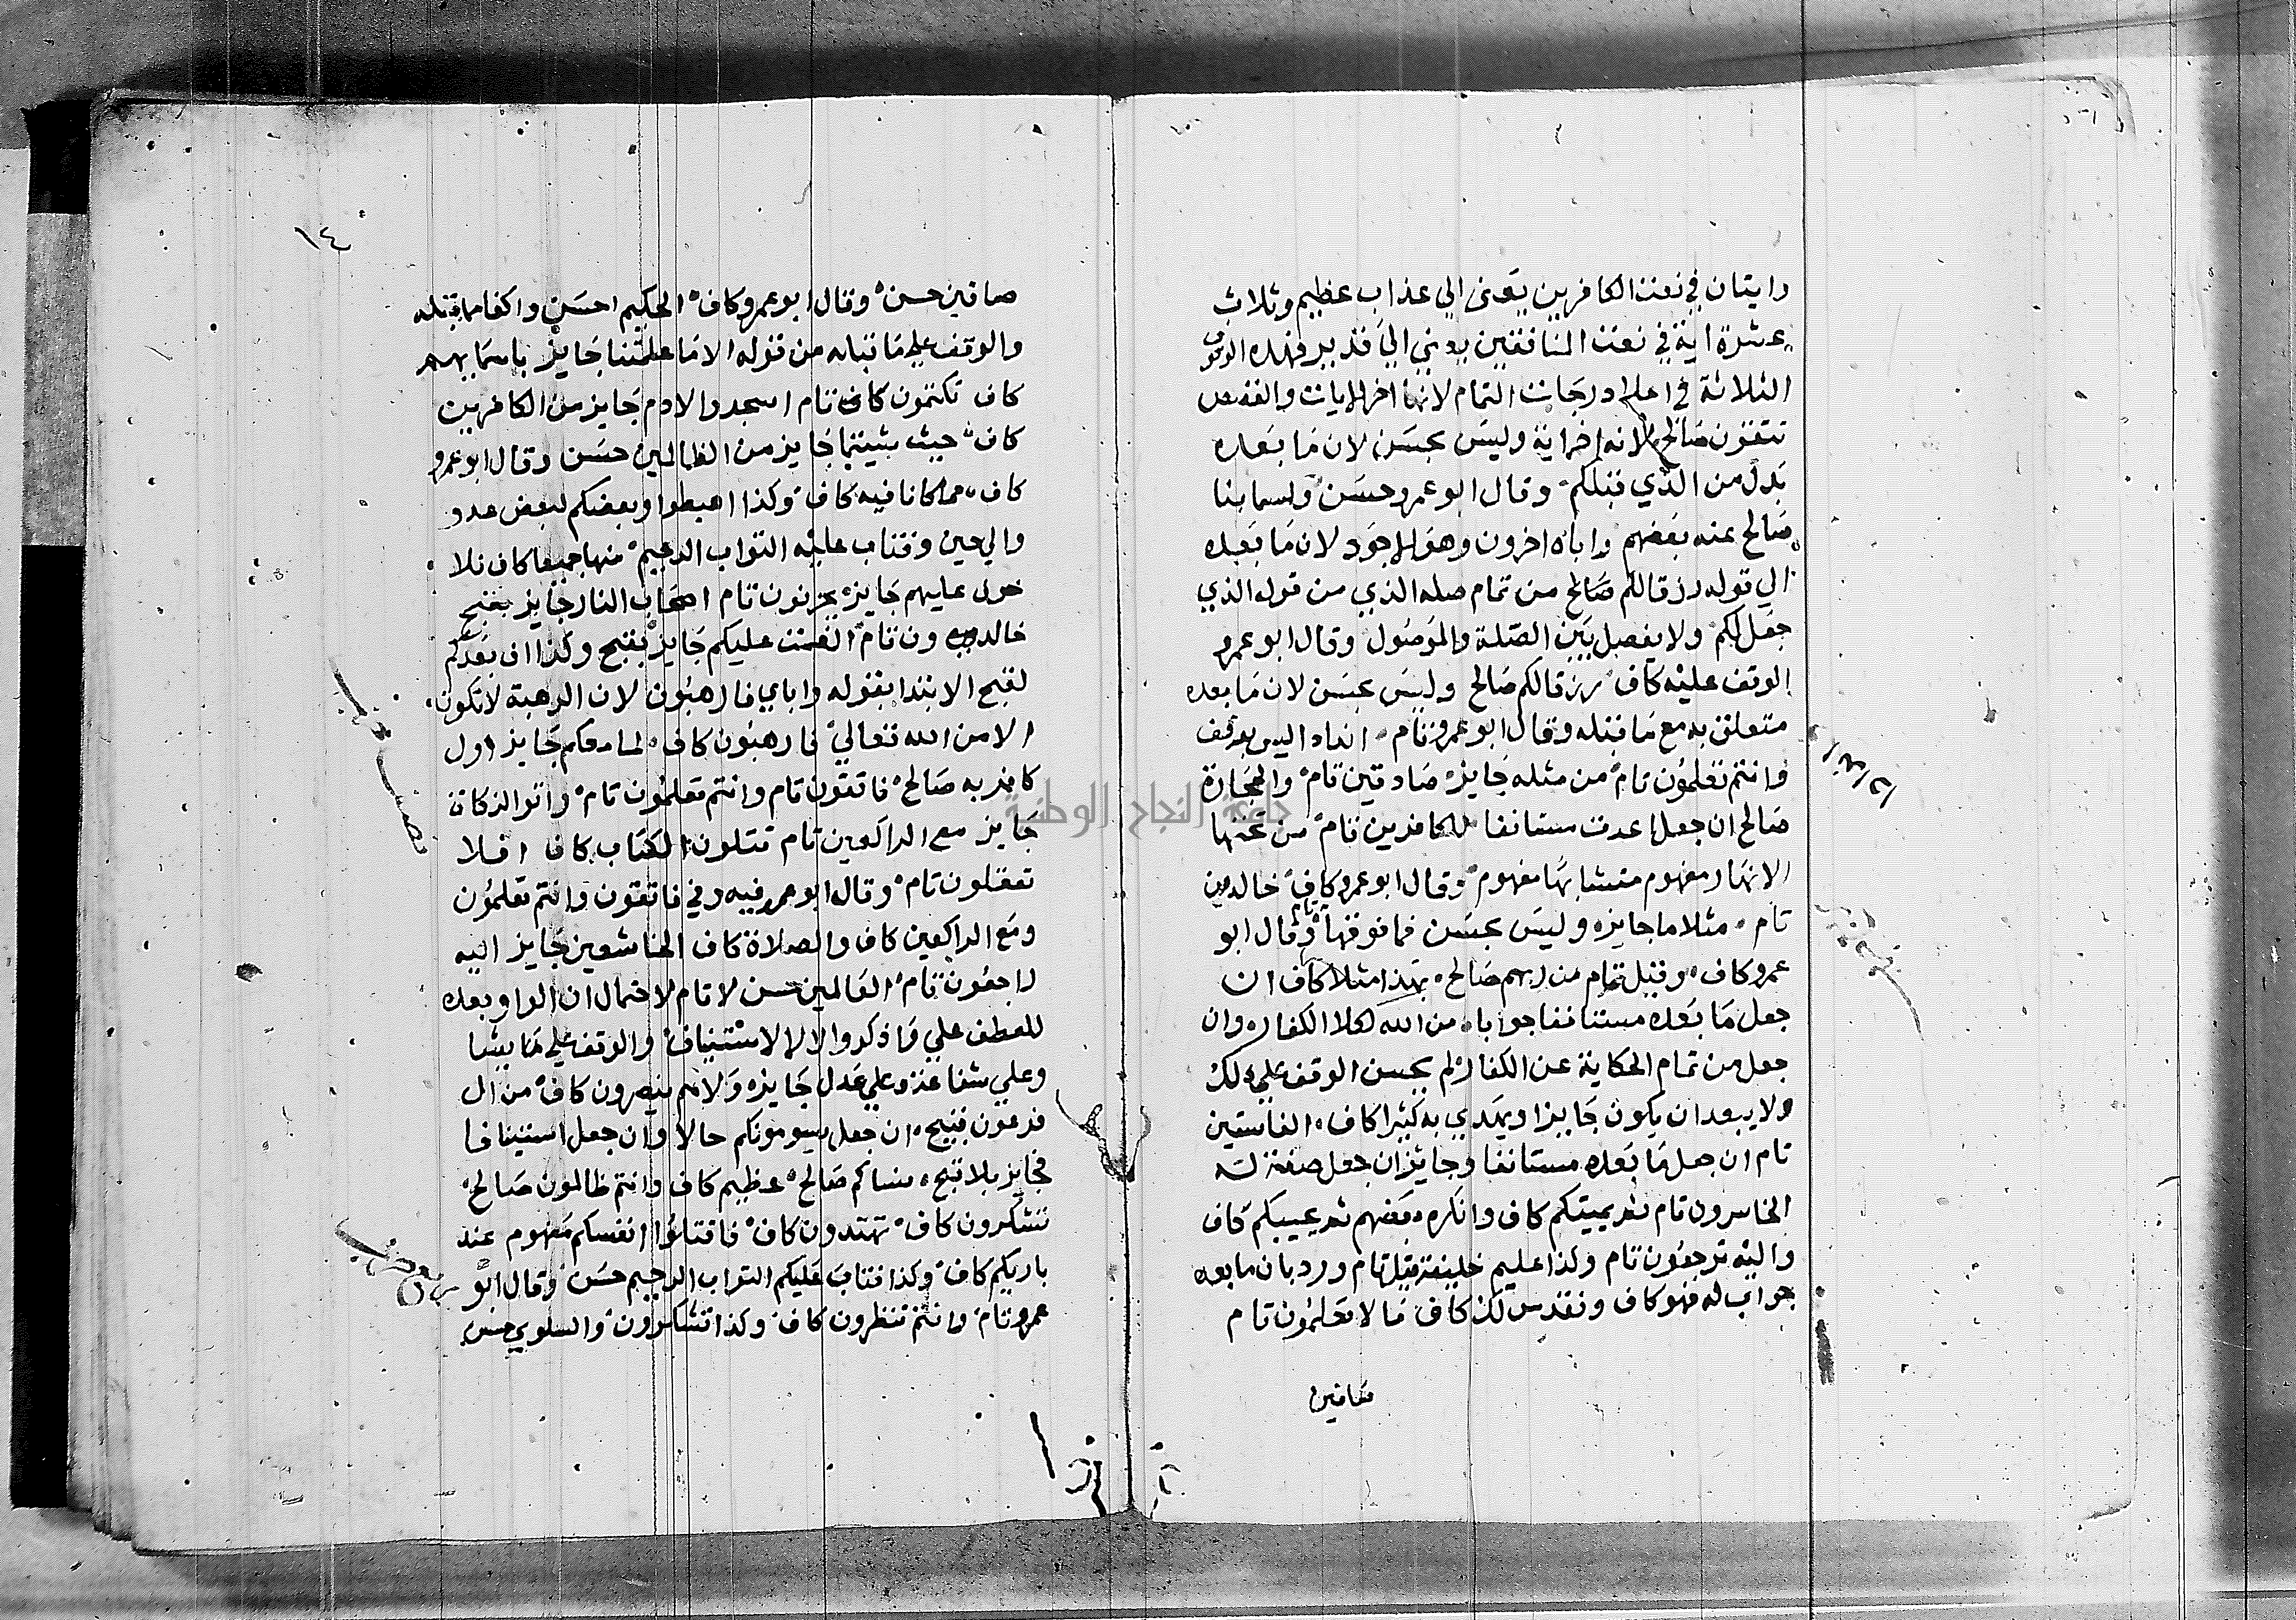 وايتان في نعت الكافرين يعني الي عذاب عظيم وثلاث
عشرة اية في نعت المنافقين يعني الي قدير فهذه الوقوف
الثلاثة في اعلا درجات التمام لانها اخر الايات والقصص
تتقون صالح لانه اخراية وليس بحسن لان ما بعده
بدل من الذي قبلكم وقال ابو عمرو حسن والسما بنا
صالح عنه بعضهم واباه اخرون وهو الاجود لان ما بعده
الي قوله رزقا لكم صالح من تمام صلة الذي من قوله الذي
جعل لكم ولا يفصل بين الصلة والموصول وقال ابو عمرو
الوقف عليه كاف رزقا لكم صالح وليس بحسن لان ما بعده
متعلق به مع ما قبله وقال ابو عمرو تام انداد اليس بوقف
وانتم تعلمون تام من مثله جايز صادقين تام والحجارة
صالح ان جعل اعدت مستانفا للكافرين تام من تحتها
الانهار مفهوم متشابها مفهوم وقال ابو عمرو كاف خالدون
تام مثلا ما جايزه وليس بحسن فما فوقها وقال ابو
عمرو كاف وقيل تمام من ربهم صالح بهذا مثلا كاف ان
جعل ما بعده مستانفا جوابا من الله لهلا الكفاره وان
جعل من تمام الحكاية عن الكفار لم يحسن الوقف علي ذلك
ولا يبعد ان يكون جايزا ويهدي به كثيرا كاف الفاسقين
تام ان جعل ما بعده مستانفا وجايز ان جعل صفة له
الخاسرون تام ثم يميتكم كاف وانكره بعضهم ثم يحييكم كاف
واليه ترجعون تام وكذا عليم خليفة قيل تام ورد بان ما بعده
جواب له فهو كاف ونقدس لك كاف ما لا تعلمون تام
صادقين
١٤
صادقين حسن وقال ابو عمرو كاف الحكيم احسن واكفا مما قبله
والوقف علي ما قبله من قوله الا ما علمتنا جايز باسمايهم
كاف تكتمون كاف تام اسجدوا لادم جايز من الكافرين
كاف حيث شيتما جايز من الظالمين حسن وقال ابو عمرو
كاف مما كانا فيه كاف وكذا اهبطوا وبعضكم لبعض عدو
والي حين وفتاب عليه التواب الرحيم منها جميعا كاف فلا
خوف عليهم جايزه يحزنون تام اصحاب النار جايز بقبح
خالدون تام انعمت عليكم جايز بقبح وكذا اوف بعهدكم
لقبح الابتدا بقوله واياي فارهبون لان الرهبة لا تكون
الا من الله تعالي فارهبون كاف لما معكم جايز اول
كافر به صالح فاتقون تام وانتم تعلمون تام واتوا الزكاة
جايز مع الراكعين تام تتلون الكتاب كاف افلا
تعقلون تام وقال ابو عمرو فيه وفي فاتقون وانتم تعلمون
ومع الراكعين كاف والصلاة كاف الخاشعين جايز اليه
راجعون تام العالمين حسن لا تام لاحتمال ان الواو بعده
للعطف علي واذكروا لا للاستيناف والوقف علي ما شيا
وعلي شفاعة وعلي عدل جايزه ولا هم ينصرون كاف من ال
فرعون قبيح ان جعل يسومونكم حالا وان جعل استينافا
فجايز بلا قبح نساكم صالح عظيم كاف وانتم ظالمون صالح
تشكرون كاف تهتدون كاف فاقتلوا انفسكم مفهوم عند
باريكم كاف وكذا فتاب عليكم التواب الرحيم حسن وقال ابو
عمرو تام وانتم تنظرون كاف وكذا تشكرون والسلوي حسن
جامعة النجاح الوطنية